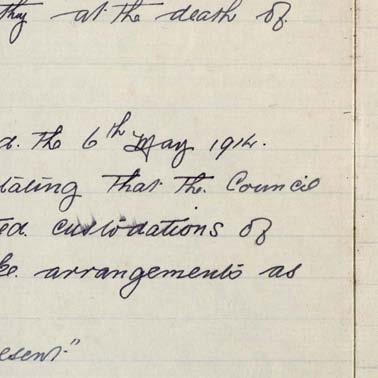 thy at the death of
d. the 6th May 1914.
tating that the Council
ed. custodations of
ke arrangements as
esent."